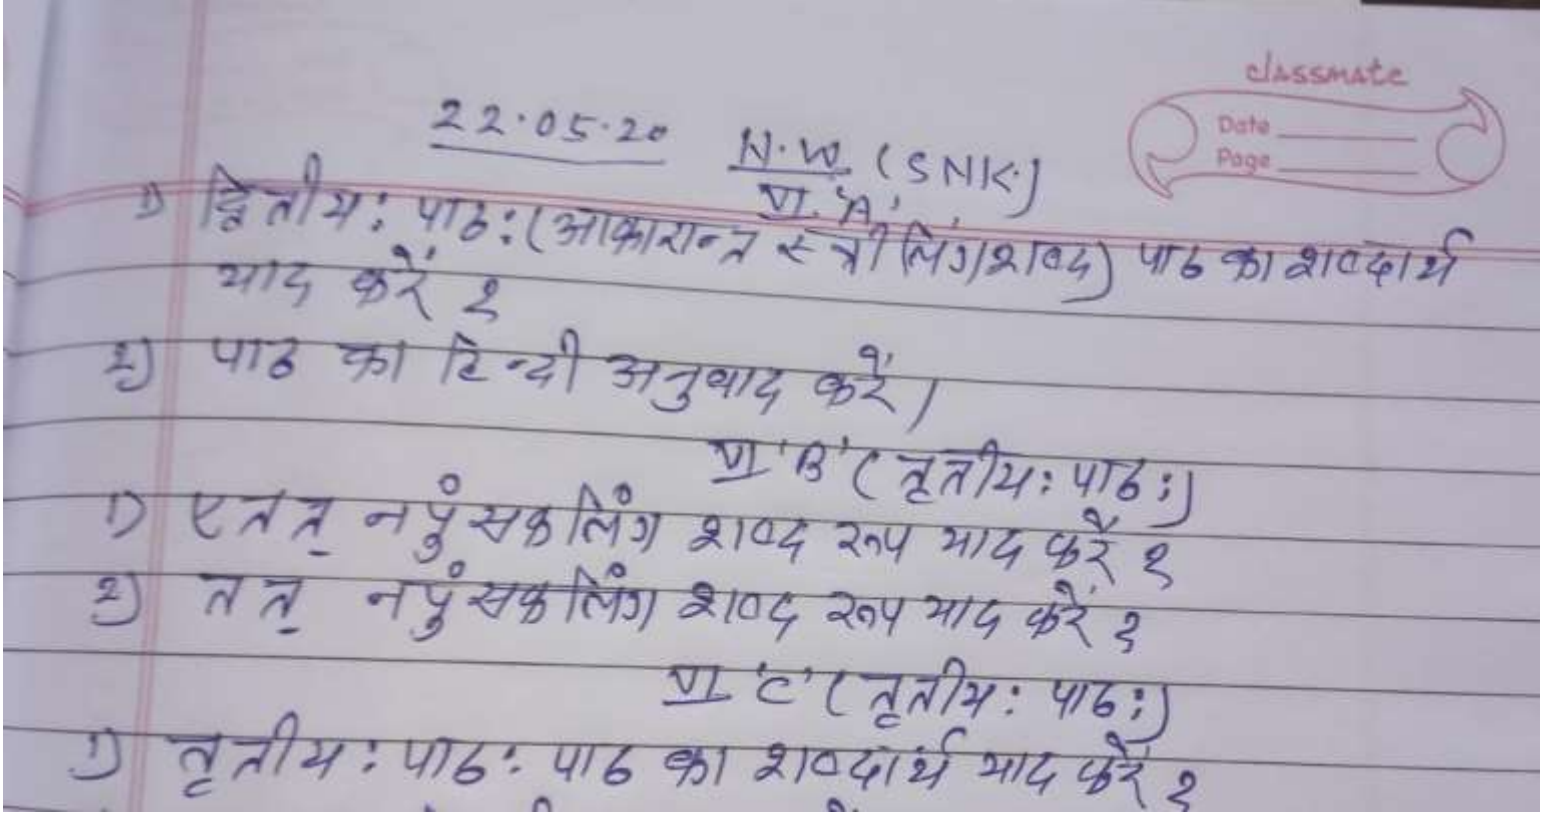 classmate
Date
Page
22.05.20 H.W (SNK)
VI 'A'
1) द्वितीय: पाठ: (आकारान्त स्त्रीलिंग शब्द) पाठ का शब्दार्थ
याद करें ?
2) पाठ का हिन्दी अनुवाद करें।
VI 'B' (तृतीय: पाठ:)
1) एतत् नपुंसकलिंग शब्द रूप याद करें ?
2) तत् नपुंसकलिंग शब्द रूप याद करें ?
VI 'C' (तृतीय: पाठ:)
1) तृतीय: पाठ: पाठ का शब्दार्थ याद करें ?